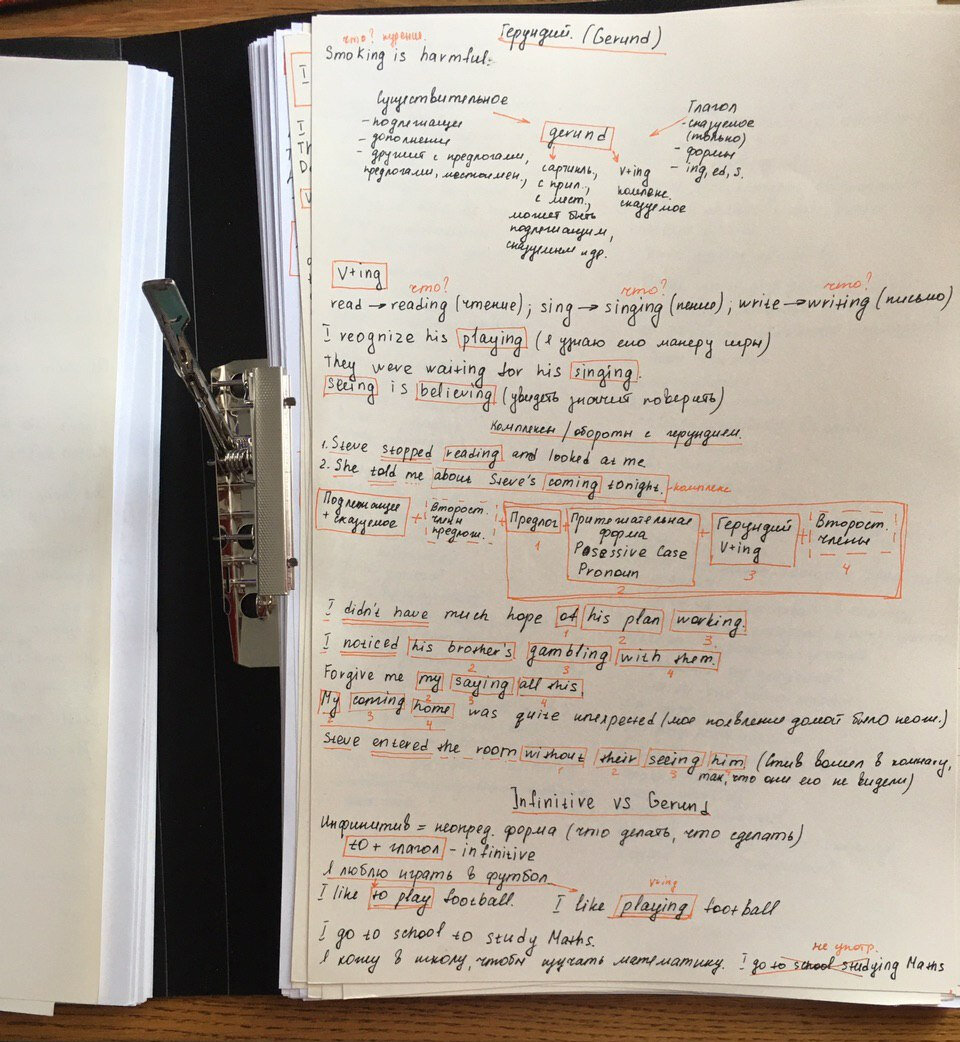 Герундий. (Gerund)
что? курение.
Smoking is harmful.
Существительное
- подлежащие
- дополнение
- дружит с предлогами,
предлогами, местоимен.,
gerund
Глагол
- сказуемое
(только)
- формы
- ing, ed, s.
с артикль,
с прил.,
с мест.,
может быть
подлежащим,
сказуемым и др.
V+ing
комплекс.
сказуемое
V+ing
что? что? что?
read → reading (чтение); sing → singing (пение); write → writing (письмо)
I recognize his playing (я узнаю его манеру игры)
They were waiting for his singing.
Seeing is believing (увидеть значит поверить)
Комплексы/обороты с герундием.
1. Steve stopped reading and looked at me.
2. She told me about Steve's coming tonight. - комплекс
Подлежащее + сказуемое + Второст. члены предлож. + Предлог + Притяжательная форма Posessive Case Pronoun + Герундий V+ing + Второст. члены
1 2 3 4
I didn't have much hope of his plan working.
1 2 3
I noticed his brother's gambling with them.
2 3 4
Forgive me my saying all this.
2 3 4
My coming home was quite unexpected (мое появление домой было неож.)
2 3 4
Steve entered the room without their seeing him. (Стив вошел в комнату,
1 2 3 4
так, что они его не видели)
Infinitive vs Gerund
Инфинитив = неопред. форма (что делать, что сделать)
to + глагол - infinitive
Я люблю играть в футбол
V+ing
I like to play football. I like playing football
I go to school to study Maths.
не употр.
Я хожу в школу, чтобы изучать математику. I go to school studying Maths